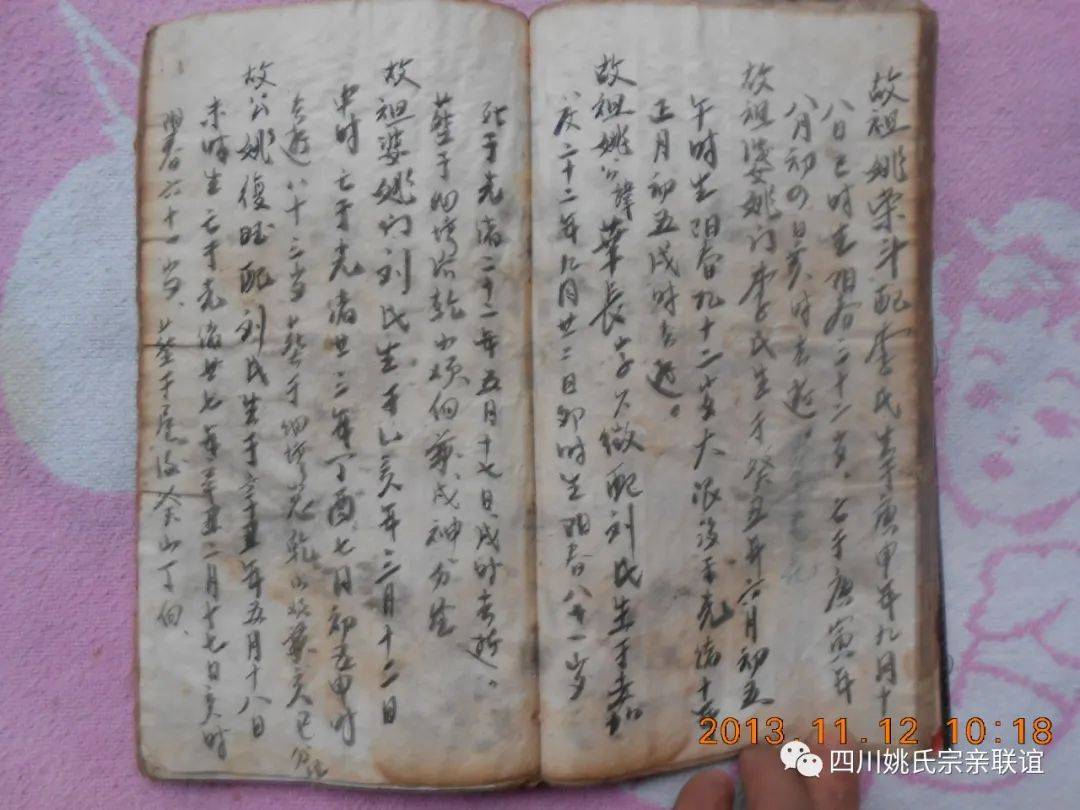 故祖姚荣斗配李氏生于庚申年九月十
八日巳时生阳春三十二岁亡于庚寅年
八月初四日亥时去逝
故祖婆姚门李氏生于癸丑年六月初五
午时生阳春九十二岁大限没于光绪十
正月初五戌时去逝。
故祖姚公讳华长字久徵配刘氏生于嘉
庆二十二年九月廿二日卯时生阳春八十一岁
死于光绪二十一年五月十七日戌时去逝。
葬于乾山
故祖婆姚门刘氏生于乙亥年三月十二日
申时亡于光绪廿三年丁酉七月初五申时
去逝八十三岁葬于乾山
故公姚復旺配刘氏生于年五月十八日
未时生亡于光绪廿七年二月十七日亥时
阳春六十一岁葬于屋后癸山丁向
2013.11.12 10:18
四川姚氏宗亲联谊